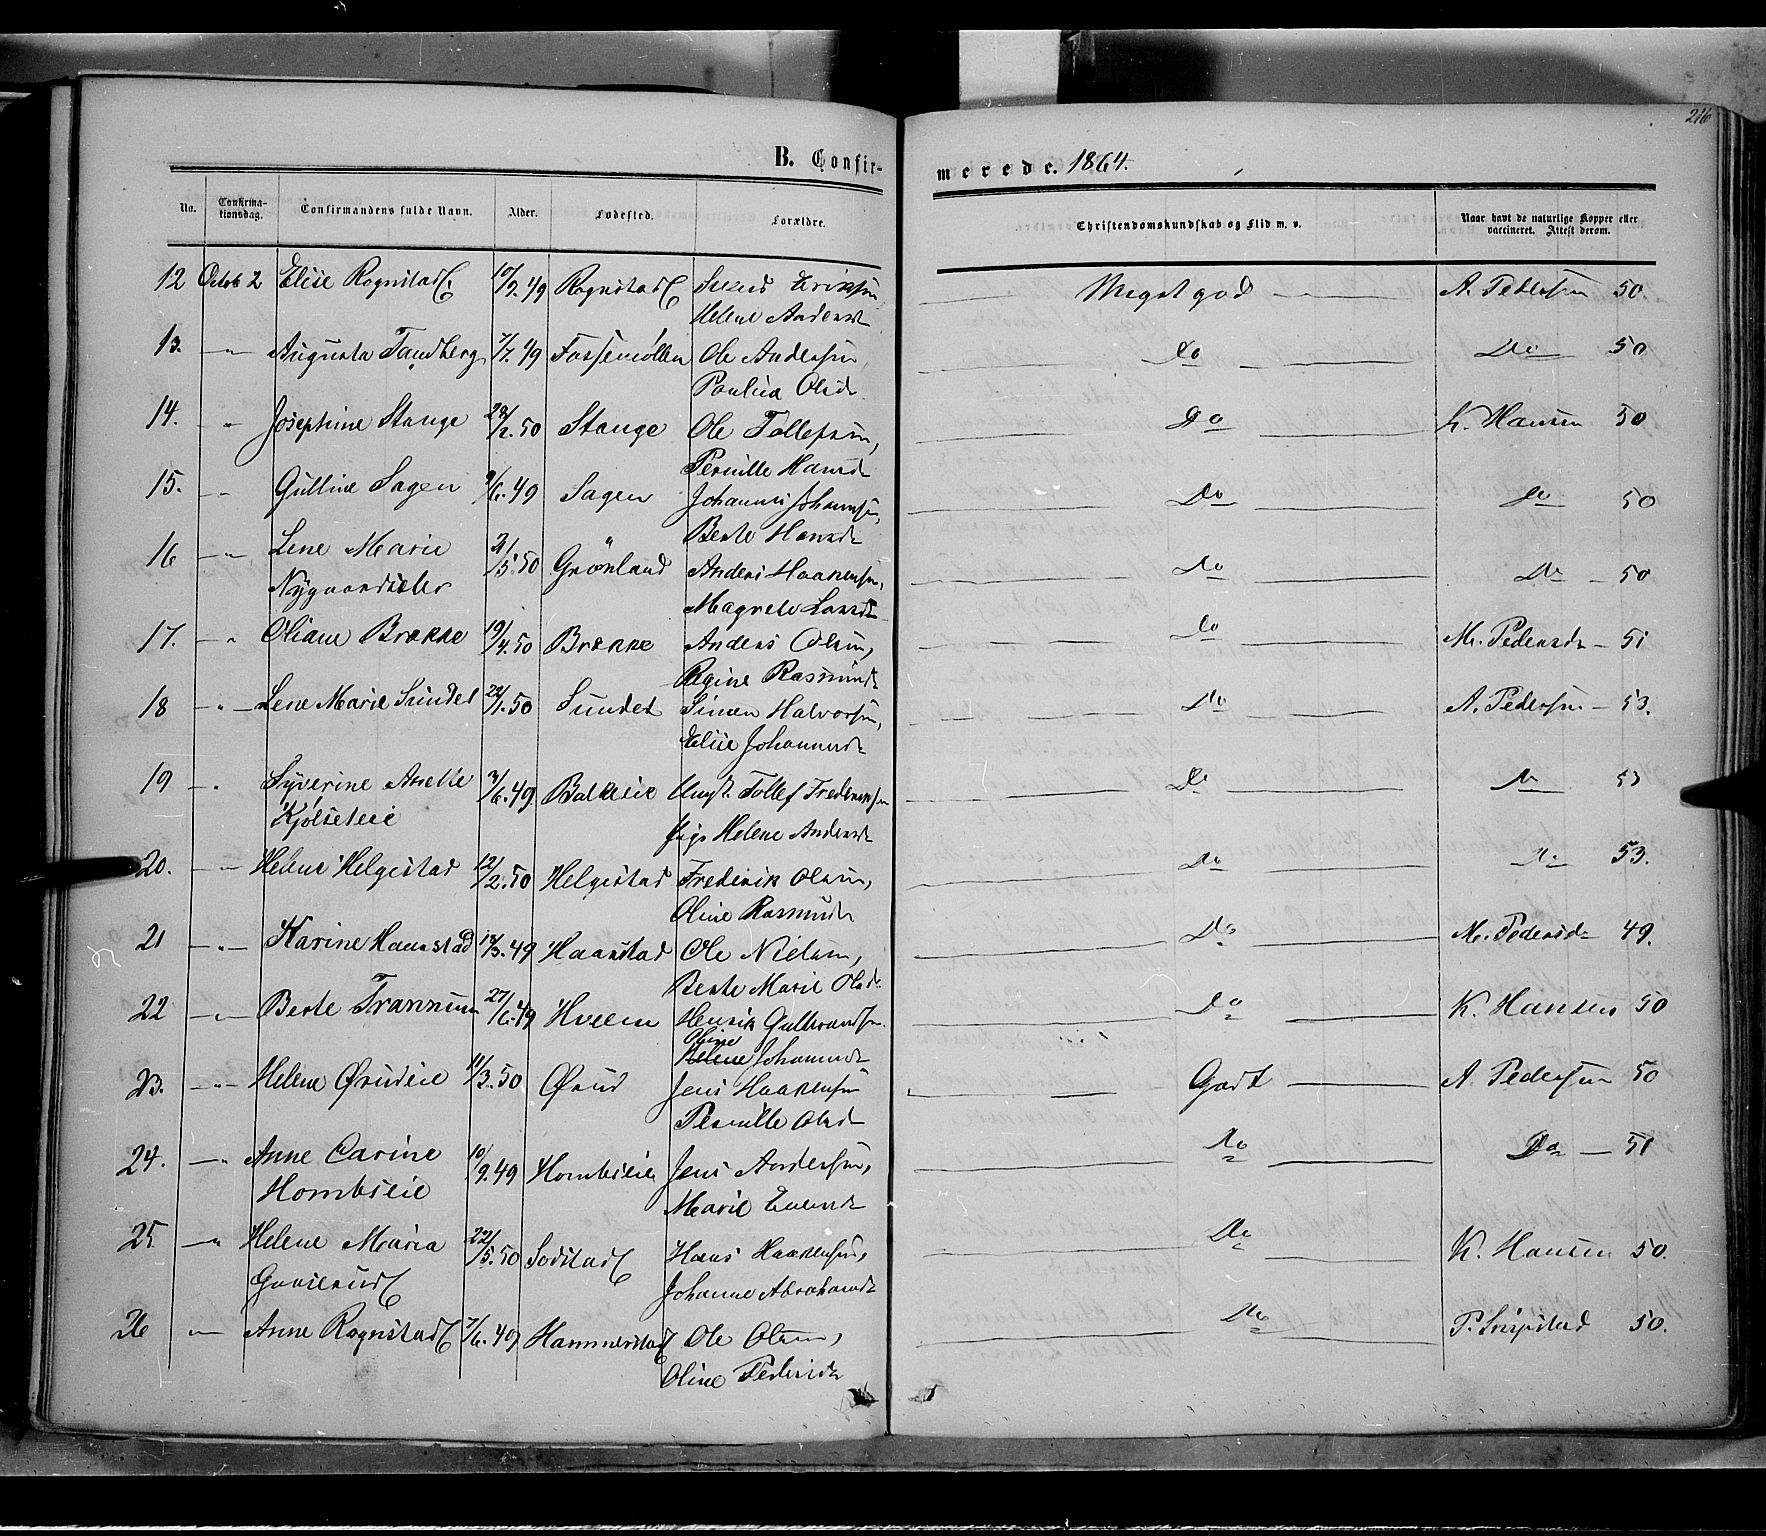 216
B. Confir-
merede. 1864.
No. Confirma-tionsdag. Confirmandens fulde Navn. Alder. Fødested. Forældre. Christendomskundskab og Flid m. v. Naar havt de naturlige Kopper eller vaccineret. Attest derom.
12 Octob 2 Elise Rognstad 10/9.49 Rognstad Eriksen Meget god A. Pedersen 50
Helene Andersd
13. " Augusta Tandberg 7/7.49 Fossemøllen Ole Andersen Do Do 50
Paulina Olsd
14. " Josephine Stange 28/2.50 Stange Ole Tollefsen, Do K. Hansen 50
Pernille Hansd
15. " Gulline Sagen 9/6.49 Sagen Johannes Johannesen, Do Do 50
Berte Hansd
16 " Lene Marie 21/5.50 Grønland Anders Haakensen, Do Do 50
Nygaardseter Magrete Larsd
17. " Oliane Brække 19/4.50 Brække Anders Olsen, Do M. Pedersd 51
Regine Rasmusd
18 " Lene Marie Sundet 22/1.50 Sundet Simen Halvorsen, Do A. Pedersen 53.
Elise Johannesd
19 " Syverine Anette 3/6.49 Bakkeie Ungk. Tollef Frederiksen Do Do 53
Kjølseteie Pige Helene Andersd
20. " Helene Helgestad 12/2.50 Helgestad Frederik Olsen, Do Do 53.
Oline Rasmusd
21 " Karine Haanstad 18/3.49 Haanstad Ole Nielsen, Do M. Pedersd 49.
Berte Marie Olsd.
22 " Berte Trannum 27/6.49 Hveem Henrik Gulbrandsen. Do K. Hansen 50
Oline
Helene Johannesd
23. " Helene Ørudeie 11/3.50 Ørud Jens Haakensen Godt A. Pedersen 50
Pernille Olsd
24. " Anne Carine 10/9.49 Hombseie Jens Andersen, Do Do 51
Hombseie Marie Evensd
25 " Helene Maria 22/5.50 Sodstad Hans Haakensen, Do K. Hansen 50.
Gaaserud Johanne Abrahamsd
26 " Anne Rognstad 7/6.49 Hammerstad Ole Olsen, Do P. 50.
Oline Pedersd